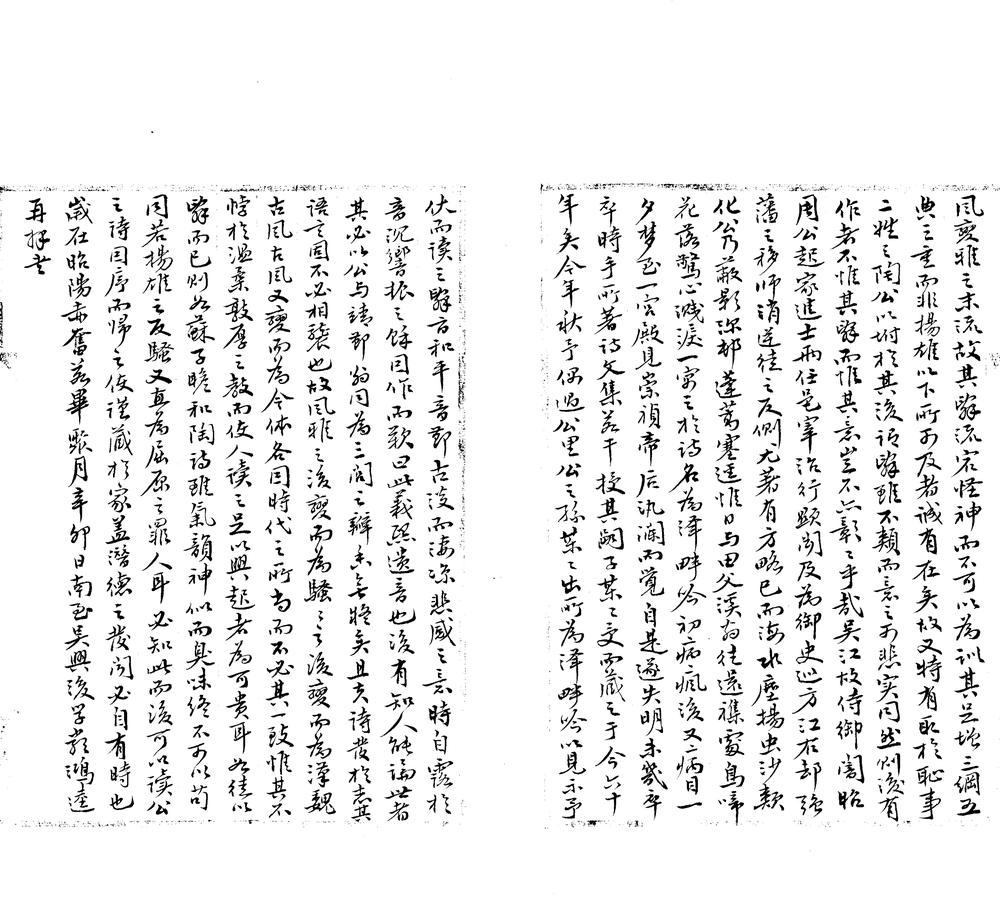 風變雅之末流故其辭流宕怪神而不可以為訓其足增三綱五
典之重而非揚雄以下所可及者誠有在矣故又特有取於恥事
二姓之陶公以坿於其後謂辭雖不類而意之可悲實同然則後有
作者不惟其辭而惟其意豈不亦彰彰乎哉吳江故侍御闇昭
周公起家進士兩任邑宰治行顯聞及為御史巡方江右却強
藩之移師消逆徒之反側尤著有方略已而海水塵揚虫沙類
化公乃蔽影深邨蓬蒿塞逕惟日与田父溪翁往還襍處鳥啼
花落驚心濺淚一寓之於詩名為澤畔吟初病瘋後又病目一
夕夢至一宮殿見崇禎帝后汍瀾而覺自是遂失明未幾卒
卒時手所著詩文集若干授其嗣子某某受而藏之于今六十
年矣今年秋予偶過公里公之孫某某出所為澤畔吟以見示予
伏而读之辭旨和平音節古淡而凄凉悲感之意時自露於
音沉響振之餘因作而歎曰此義熙遺音也後有知人能論世者
其必以公与靖節翁同為三閭之瓣香無疑矣且夫诗發於志其
語言固不必相襲也故風雅之後變而為騷騷之後變而為漢魏
古風古風又變而為今体各因時代之所尚而不必其一致惟其不
悖於溫柔敦厚之教而使人读之足以興起者為可貴耳如徒以
辭而已則如蘇子瞻和陶詩雖氣韻神似而臭味終不可以苟
同若揚雄之反騷又直為屈原之罪人耳必知此而後可以读公
之诗因序而归之使谨藏於家盖潛德之發闻必自有時也
歲在昭陽赤奮若畢辜月辛卯日南至吳興後学嚴鴻逵
再拜書